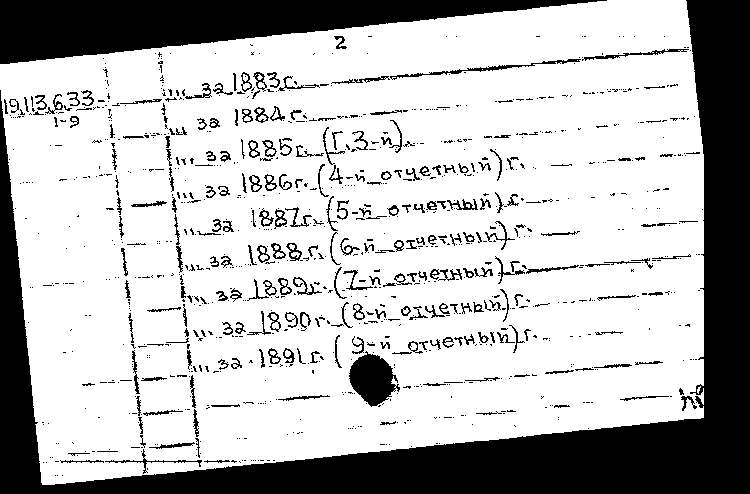 2
19.113.6.33-
1-9
... за 1883 г.
... за 1884 г.
... за 1885 г. (Г. 3-й).
... за 1886 г. (4-й отчетный) г.
... за 1887 г. (5-й отчетный) г.
... за 1888 г. (6-й отчетный) г.
... за 1889 г. (7-й отчетный) г.
... за 1890 г. (8-й отчетный) г.
... за 1891 г. (9-й отчетный) г.